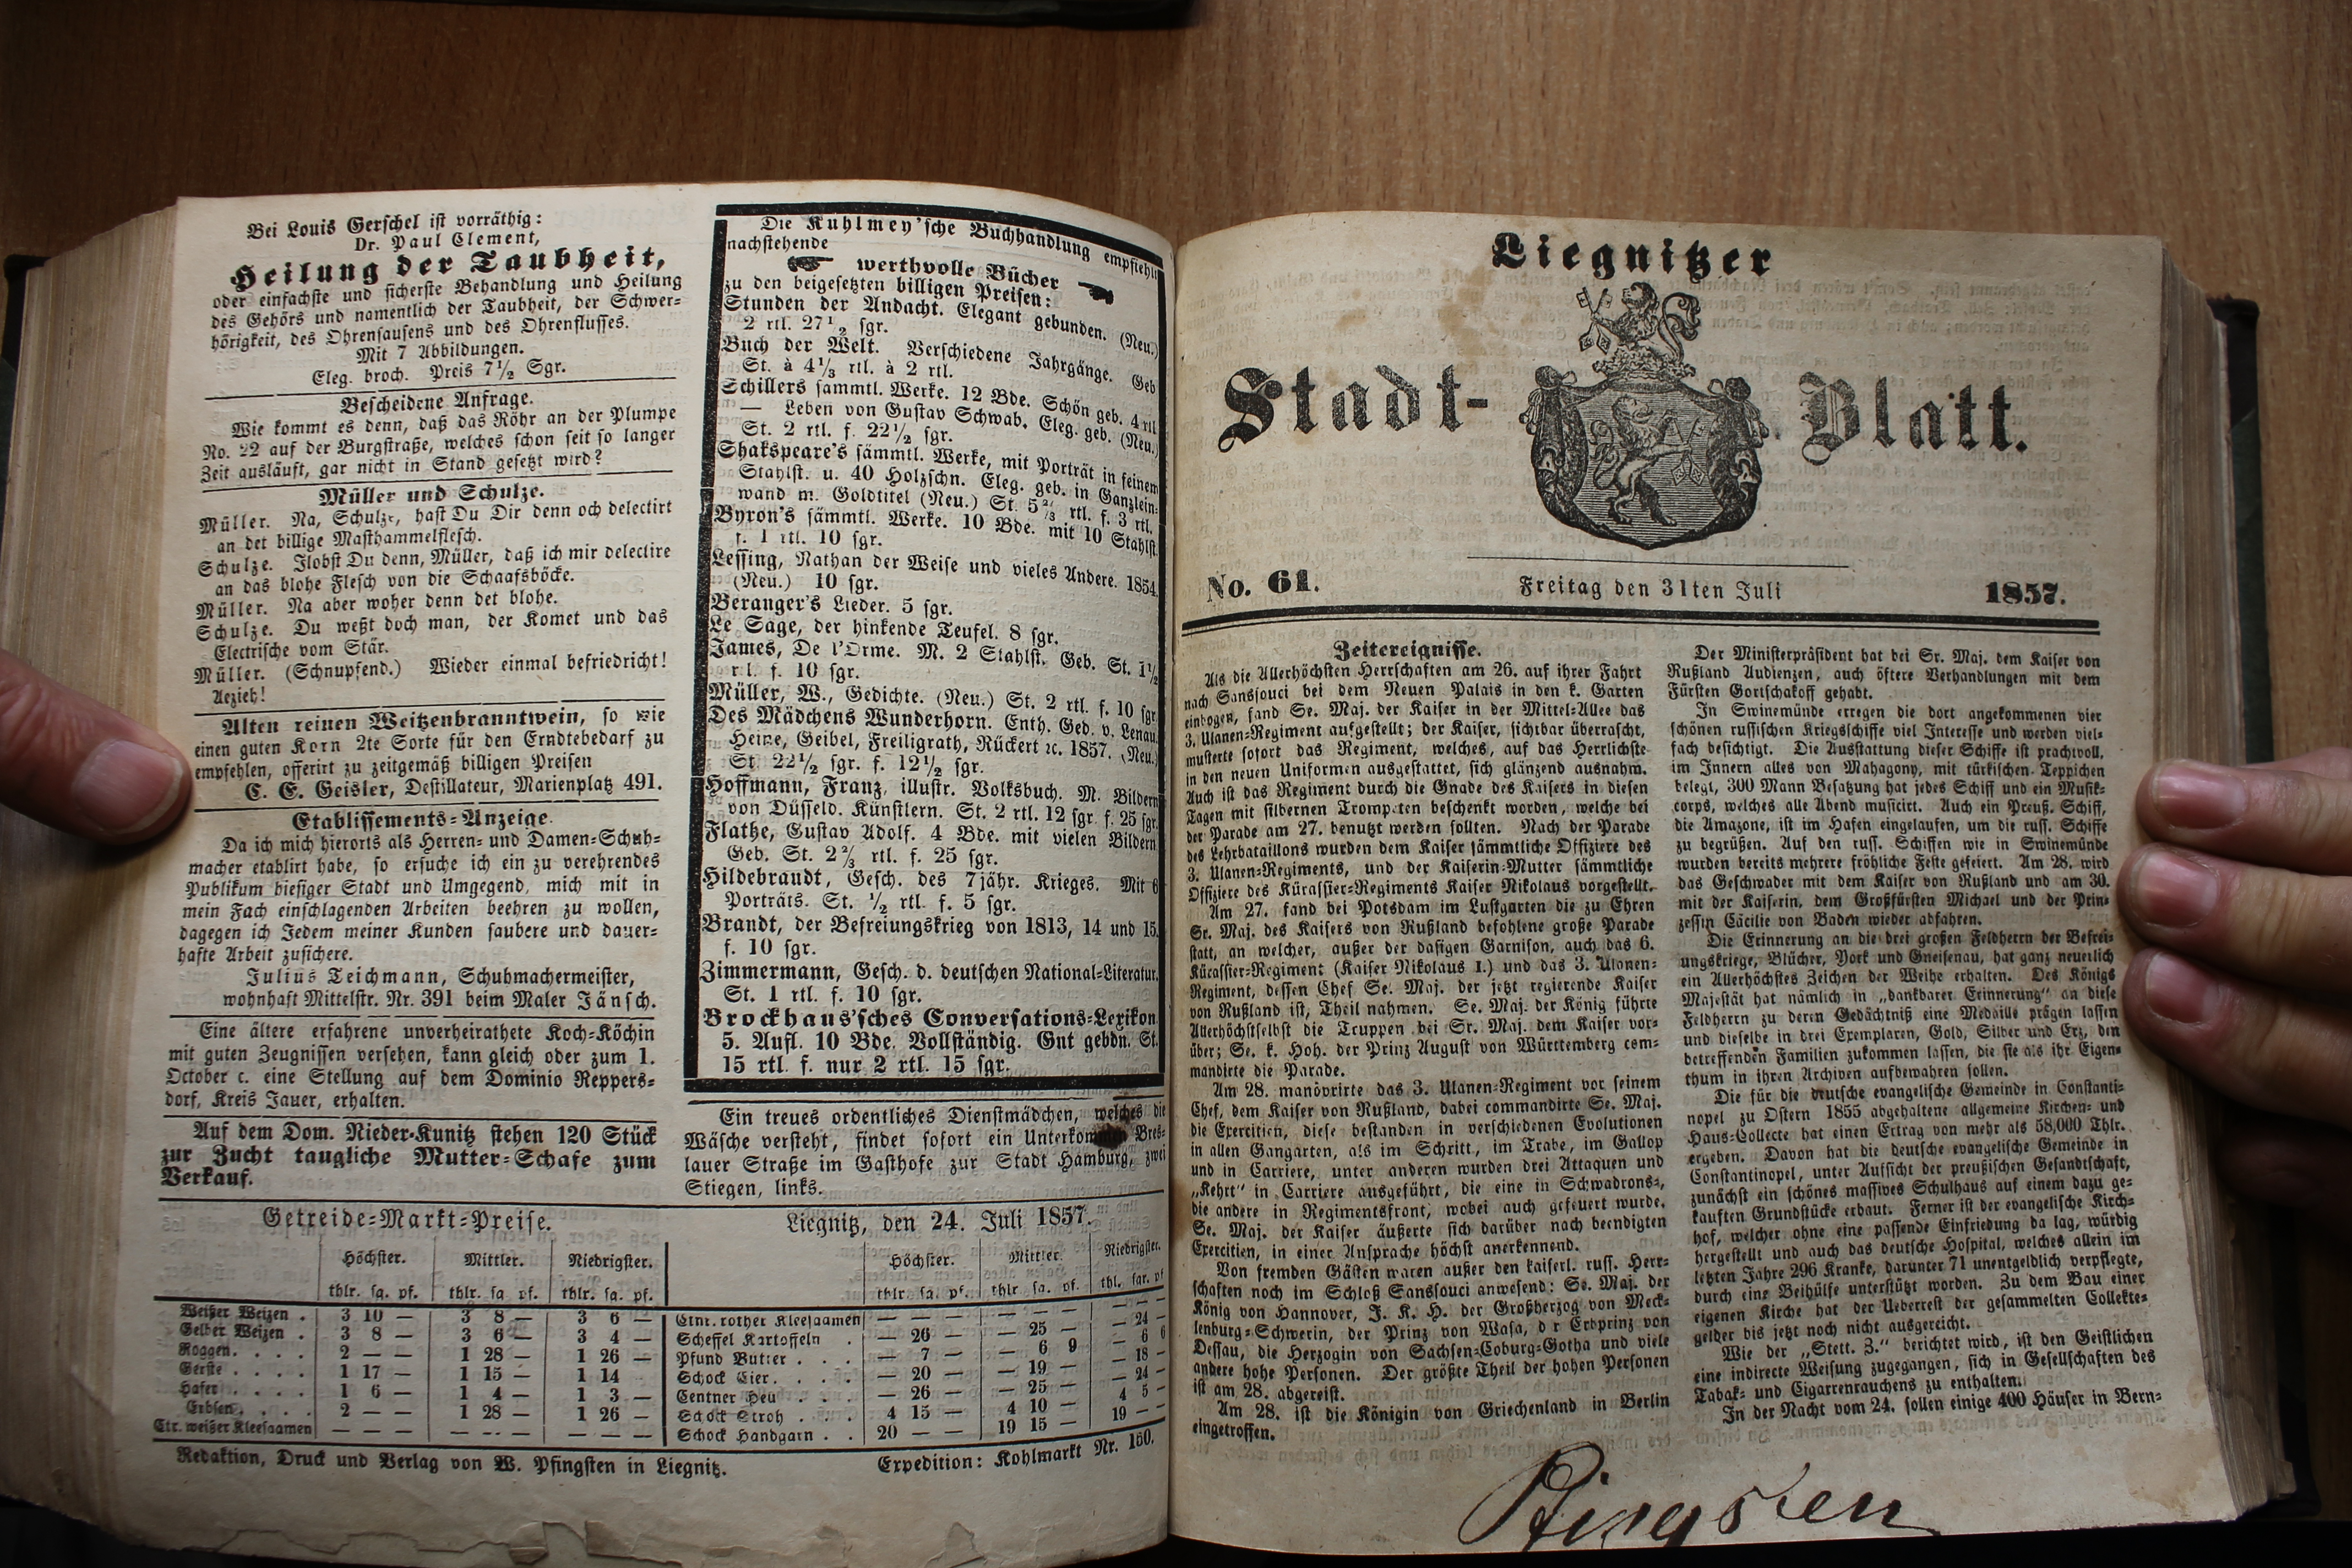 Bei Louis Gerschel ist vorräthig:
Dr. Paul Clement,
Heilung der Taubheit,
oder einfachste und sicherste Behandlung und Heilung
des Gehörs und namentlich der Taubheit, der Schwer=
hörigkeit, des Ohrensausens und des Ohrenflusses.
Mit 7 Abbildungen.
Eleg. broch. Preis 7½ Sgr.
Bescheidene Anfrage.
Wie kommt es denn, daß das Röhr an der Plumpe
No. 22 auf der Burgstraße, welches schon seit so langer
Zeit ausläuft, gar nicht in Stand gesetzt wird?
Müller und Schulze.
Müller. Na, Schulze, hast Du Dir denn och delectirt
an det billige Masthammelflesch.
Schulze. Ilobst Du denn, Müller, daß ich mir delectire
an das blohe Flesch von die Schaafsböcke.
Müller. Na aber woher denn det blohe.
Schulze. Du weßt doch man, der Komet und das
Electrische vom Stär.
Müller. (Schnupfend.) Wieder einmal befriedricht!
Aezieh!
Alten reinen Weitzenbranntwein, so wie
einen guten Korn 2te Sorte für den Erndtebedarf zu
empfehlen, offerirt zu zeitgemäß billigen Preisen
C. E. Geisler, Destillateur, Marienplatz 491.
Etablissements=Anzeige.
Da ich mich hierorts als Herren= und Damen=Schuh=
macher etablirt habe, so ersuche ich ein zu verehrendes
Publikum hiesiger Stadt und Umgegend, mich mit in
mein Fach einschlagenden Arbeiten beehren zu wollen,
dagegen ich Jedem meiner Kunden saubere und dauer=
hafte Arbeit zusichere.
Julius Teichmann, Schuhmachermeister,
wohnhaft Mittelstr. Nr. 391 beim Maler Jänsch.
Eine ältere erfahrene unverheirathete Koch=Köchin
mit guten Zeugnissen versehen, kann gleich oder zum 1.
October c. eine Stellung auf dem Dominio Reppers=
dorf, Kreis Jauer, erhalten.
Auf dem Dom. Nieder=Kunitz stehen 120 Stück
zur Zucht taugliche Mutter=Schafe zum
Verkauf.
Die Kuhlmey'sche Buchhandlung empfiehlt
nachstehende
werthvolle Bücher
zu den beigesetzten billigen Preisen:
Stunden der Andacht. Elegant gebunden. (Neu.)
2 rtl. 27½ sgr.
Buch der Welt. Verschiedene Jahrgänge. Geb
St. à 4⅓ rtl. à 2 rtl.
Schillers sammtl. Werke. 12 Bde. Schön geb. 4 rtl
— Leben von Gustav Schwab. Eleg. geb. (Neu.)
St. 2 rtl. f. 22½ sgr.
Shakspeare's sämmtl. Werke, mit Porträt in feinem
Stahlst. u. 40 Holzschn. Eleg. geb. in Ganzlein=
wand m. Goldtitel (Neu.) St. 5⅔ rtl. f. 3 rtl.
Byron's sämmtl. Werke. 10 Bde. mit 10 Stahlst.
f. 1 rtl. 10 sgr.
Lessing, Nathan der Weise und vieles Andere. 1854.
(Neu.) 10 sgr.
Beranger's Lieder. 5 sgr.
Le Sage, der hinkende Teufel. 8 sgr.
James, De l'Orme. M. 2 Stahlst. Geb. St. 1½
rtl. f. 10 sgr.
Müller, W., Gedichte. (Neu.) St. 2 rtl. f. 10 sgr.
Des Mädchens Wunderhorn. Enth. Ged. v. Lenau,
Heine, Geibel, Freiligrath, Rückert ꝛc. 1857. (Neu.)
St. 22½ sgr. f. 12½ sgr.
Hoffmann, Franz, illustr. Volksbuch. M. Bildern
von Düsseld. Künstlern. St. 2 rtl. 12 sgr. f. 25 sgr.
Flathe, Gustav Adolf. 4 Bde. mit vielen Bildern
Geb. St. 2⅔ rtl. f. 25 sgr.
Hildebrandt, Gesch. des 7jähr. Krieges. Mit 6
Porträts. St. ½ rtl. f. 5 sgr.
Brandt, der Befreiungskrieg von 1813, 14 und 15.
f. 10 sgr.
Zimmermann, Gesch. d. deutschen National=Literatur.
St. 1 rtl. f. 10 sgr.
Brockhaus'sches Conversations=Lexikon
5. Aufl. 10 Bde. Vollständig. Gnt gebdn. St.
15 rtl. f. nur 2 rtl. 15 sgr.
Ein treues ordentliches Dienstmädchen, welches die
Wäsche versteht, findet sofort ein Bres=
lauer Straße im Gasthofe zur Stadt Hamburg, zwei
Stiegen, links.
Getreide=Markt=Preise. Liegnitz, den 24. Juli 1857.
Höchster. Mittler. Niedrigster. Höchster. Mittler. Niedrigster.
thlr. sg. pf. thlr. sg pf. thlr. sg. pf. thlr sg. pf. thlr sg. pf. thl. sgr. pf
Weißer Weizen . 3 10 — 3 8 — 3 6 — Ctnr. rother Kleesaamen — — — — — — — — —
Gelber Weizen . 3 8 — 3 6 — 3 4 — Scheffel Kartoffeln . — 26 — — 25 — — 24 —
Roggen. . . . 2 — — 1 28 — 1 26 — Pfund Butter . . . — 7 — — 6 9 — 6 6
Gerste . . . . 1 17 — 1 15 — 1 14 Schock Eier. . . . — 20 — — 19 — — 18 —
Hafer . . . . 1 6 — 1 4 — 1 3 — Centner Heu . . . — 26 — — 25 — — 24 —
Erbsen. . . . 2 — — 1 28 — 1 26 — Schock Stroh . . . 4 15 — 4 10 — 4 5 —
Ctr. weißer Kleesaamen — — — — — — — — — Schock Handgarn . . 20 — — 19 15 — 19 — —
Redaktion, Druck und Verlag von W. Pfingsten in Liegnitz. Expedition: Kohlmarkt Nr. 150.
Liegnitzer
Stadt- Blatt.
No. 61. Freitag den 31ten Juli 1857.
Zeitereignisse.
Als die Allerhöchsten Herrschaften am 26. auf ihrer Fahrt
nach Sanssouci bei dem Neuen Palais in den k. Garten
einbogen, fand Se. Maj. der Kaiser in der Mittel=Allee das
3. Ulanen=Regiment aufgestellt; der Kaiser, sichtbar überrascht,
musterte sofort das Regiment, welches, auf das Herrlichste
in den neuen Uniformen ausgestattet, sich glänzend ausnahm.
Auch ist das Regiment durch die Gnade des Kaisers in diesen
Tagen mit silbernen Trompeten beschenkt worden, welche bei
der Parade am 27. benutzt werden sollten. Nach der Parade
des Lehrbataillons wurden dem Kaiser sämmtliche Offiziere des
3. Ulanen=Regiments, und der Kaiserin=Mutter sämmtliche
Offiziere des Kürassier=Regiments Kaiser Nikolaus vorgestellt.
Am 27. fand bei Potsdam im Lustgarten die zu Ehren
Sr. Maj. des Kaisers von Rußland befohlene große Parade
statt, an welcher, außer der dasigen Garnison, auch das 6.
Kürassier=Regiment (Kaiser Nikolaus I.) und das 3. Ulanen=
Regiment, dessen Chef Se. Maj. der jetzt regierende Kaiser
von Rußland ist, Theil nahmen. Se. Maj. der König führte
Allerhöchstselbst die Truppen bei Sr. Maj. dem Kaiser vor=
über; Se. k. Hoh. der Prinz August von Württemberg com=
mandirte die Parade.
Am 28. manövrirte das 3. Ulanen=Regiment vor seinem
Chef, dem Kaiser von Rußland, dabei commandirte Se. Maj.
die Exercitien, diese bestanden in verschiedenen Evolutionen
in allen Gangarten, als im Schritt, im Trabe, im Gallop
und in Carriere, unter anderen wurden drei Attaquen und
„Kehrt" in Carriere ausgeführt, die eine in Schwadrons=,
die andere in Regimentsfront, wobei auch gefeuert wurde.
Se. Maj. der Kaiser äußerte sich darüber nach beendigten
Exercitien, in einer Ansprache höchst anerkennend.
Von fremden Gästen waren außer den kaiserl. russ. Herr=
schaften noch im Schloß Sanssouci anwesend: Se. Maj. der
König von Hannover, J. K. H. der Großherzog von Meck=
lenburg=Schwerin, der Prinz von Wasa, d r Erbprinz von
Dessau, die Herzogin von Sachsen=Coburg=Gotha und viele
andere hohe Personen. Der größte Theil der hohen Personen
ist am 28. abgereist.
Am 28. ist die Königin von Griechenland in Berlin
eingetroffen.
Der Ministerpräsident hat bei Sr. Maj. dem Kaiser von
Rußland Audienzen, auch öftere Verhandlungen mit dem
Fürsten Gortschakoff gehabt.
In Swinemünde erregen die dort angekommenen vier
schönen russischen Kriegsschiffe viel Interesse und werden viel=
fach besichtigt. Die Ausstattung dieser Schiffe ist prachtvoll,
im Innern alles von Mahagony, mit türkischen Teppichen
belegt, 300 Mann Besatzung hat jedes Schiff und ein Musik=
corps, welches alle Abend musicirt. Auch ein Preuß. Schiff,
die Amazone, ist im Hafen eingelaufen, um die russ. Schiffe
zu begrüßen. Auf den russ. Schiffen wie in Swinemünde
wurden bereits mehrere fröhliche Feste gefeiert. Am 28. wird
das Geschwader mit dem Kaiser von Rußland und am 30.
mit der Kaiserin, dem Großfürsten Michael und der Prin=
zessin Cäcilie von Baden wieder abfahren.
Die Erinnerung an die drei großen Feldherrn der Befrei=
ungskriege, Blücher, York und Gneisenau, hat ganz neuerlich
ein Allerhöchstes Zeichen der Weihe erhalten. Des Königs
Majestät hat nämlich in „dankbarer Erinnerung" an diese
Feldherrn zu deren Gedächtniß eine Medaille prägen lassen
und dieselbe in drei Exemplaren, Gold, Silber und Erz, den
betreffenden Familien zukommen lassen, die sie als ihr Eigen=
thum in ihren Archiven aufbewahren sollen.
Die für die deutsche evangelische Gemeinde in Constanti=
nopel zu Ostern 1855 abgehaltene allgemeine Kirchen= und
Haus=Collecte hat einen Ertrag von mehr als 58,000 Thlr.
ergeben. Davon hat die deutsche evangelische Gemeinde in
Constantinopel, unter Aufsicht der preußischen Gesandtschaft,
zunächst ein schönes massives Schulhaus auf einem dazu ge=
kauften Grundstücke erbaut. Ferner ist der evangelische Kirch=
hof, welcher ohne eine passende Einfriedung da lag, würdig
hergestellt und auch das deutsche Hospital, welches allein im
letzten Jahre 296 Kranke, darunter 71 unentgeldlich verpflegte,
durch eine Beihülfe unterstützt worden. Zu dem Bau einer
eigenen Kirche hat der Ueberrest der gesammelten Collekte=
gelder bis jetzt noch nicht ausgereicht.
Wie der „Stett. Z." berichtet wird, ist den Geistlichen
eine indirecte Weisung zugegangen, sich in Gesellschaften des
Tabak= und Cigarrenrauchens zu enthalten.
In der Nacht vom 24. sollen einige 400 Häuser in Bern=
Pfingsten